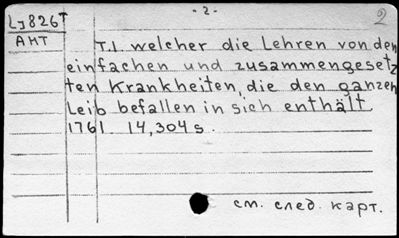 - 2 -
2
Lj826т
АНТ
T.I. welcher die Lehren von den
einfachen und zusammengesetz
ten Krankheiten, die den ganzen
Leib befallen in sich enthält
1761. 14,304 s.
см. след. карт.